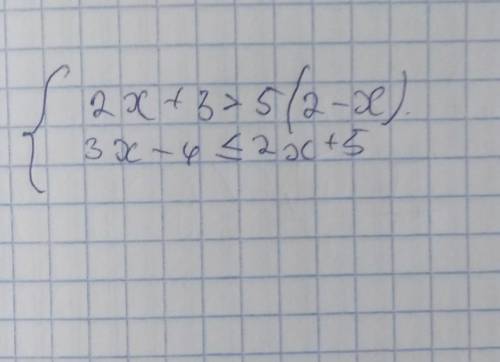 2x + 3 > 5(2 - x).
3x - 4 ≤ 2x + 5